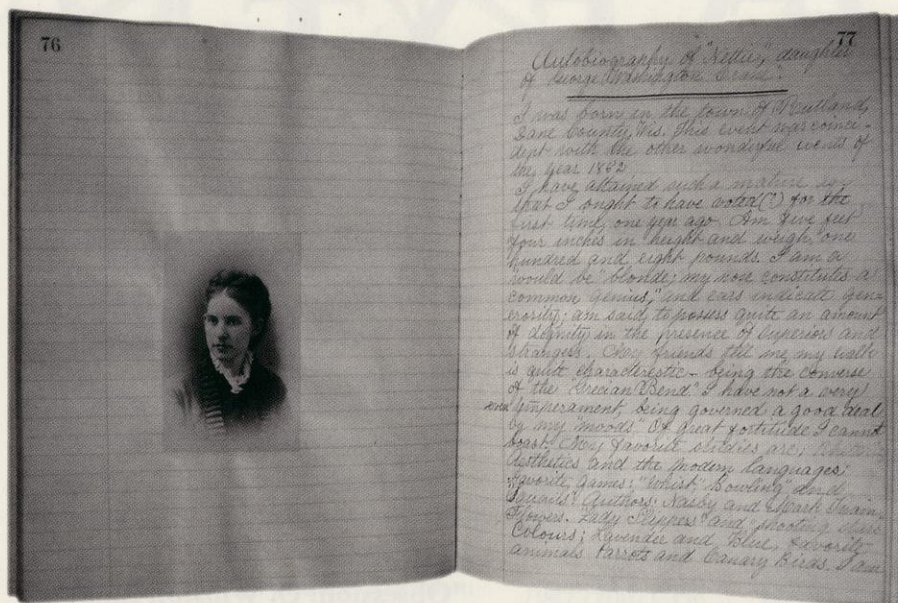 76
77
Autobiography of "Nettie," daughter
of George Washington Crane".
I was born in the town of Rutland,
Dane County, Wis. This event was coinci-
dent with the other wonderful events of
the year 1852
I have attained such a mature age
that I ought to have voted(?) for the
first time, one year ago. Am five feet
four inches in height and weigh one
hundred and eight pounds. I am a
would be "blonde; my nose constitutes a
common genius," and ears indicate gen-
erosity; am said, to possess quite an amount
of dignity in the presence of superiors and
strangers. My friends tell me my walk
is quite characteristic - being the converse
of the "Grecian Bend" I have not a very
temperament, being governed a good deal
by my "moods" Of great fortitude I cannot
boast. My favorite studies are;
Aesthetics and the modern languages;
favorite games; "Whist", Bowling" and
Authors: Nasby and Mark Twain,
Flowers. Lady Slippers" and "shooting stars
Colours; Lavender and Blue, favorite
animals Parrots and Canary Birds. I am